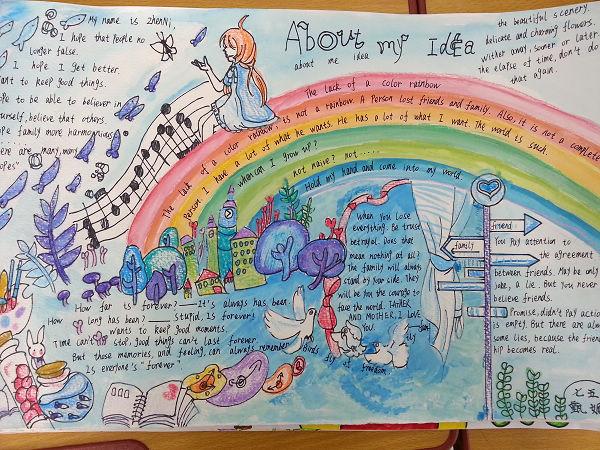 My name is zhenNi,
I hope that People no
Longer false.
I hope I get better.
ant to keep good things.
pe to be able to believer in
urself, believe that others.
pe family more harmonious
ere are many, many
opes"
About my IdEa
about me idea
the beautiful scenery.
delicate and charming flowers.
wither away, sooner or later.
the elapse of time, don't do
that again.
The lack of a color rainbow
The lack of a color rainbow, is not a rainbow. A Person lost friends and family. Also, it is not a complete
Person. I have a lot of what he wants. He has a lot of what I want. The world is such.
when can I grow up?
not naive? not......
Hold my hand and come into my world.
When you lose
everything. Be trust
betrayal. Does that
mean nothing at all?
The family will always
stand by your side. They
will be you the courage to
face the world. FAtHER
AND MOTHER, I LOVE
YOU.
friend
family
You Pay attention to
the agreement
between friends. May be only
joke, a lie. But you never
believe friends.
Promise, didn't Pay action
is empty. But there are also
some lies, because the friend
hip becomes real.
How far is forever? — It's always has been.
How long has been? — Stupid, Is forever!
wants to keep good moments.
Time can't stop, good things can't last forever
But those memories, and feeling, can always remember
Is everyone's "forever"
birds fly at freedom
fly